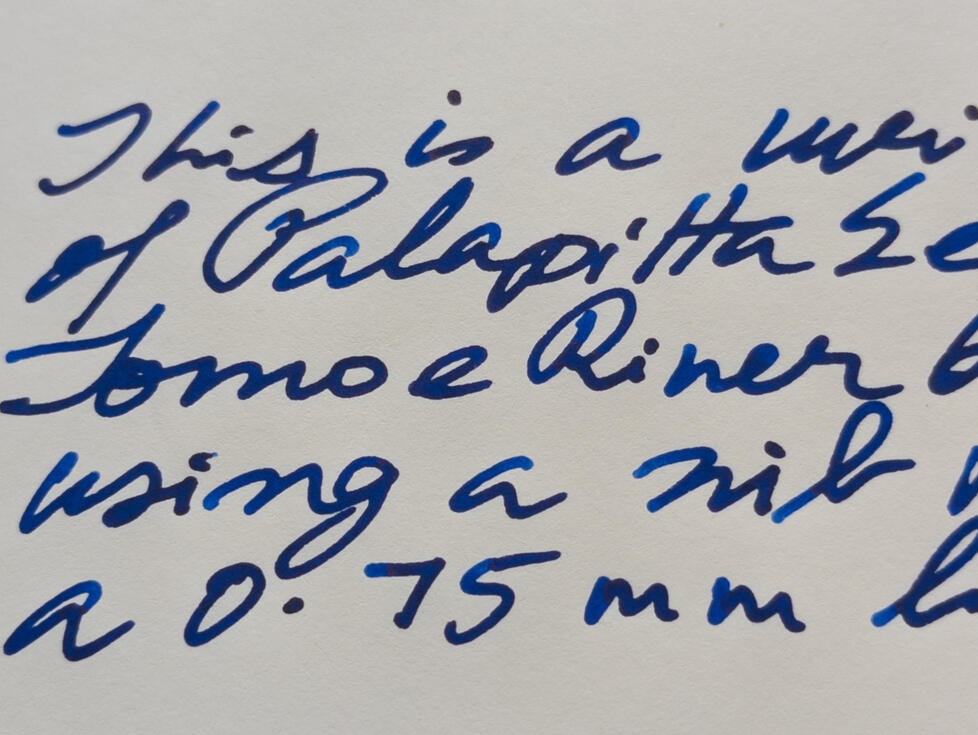 This is a wri
of Palapitta Se
Tomoe River
using a nib
a 0.75 mm